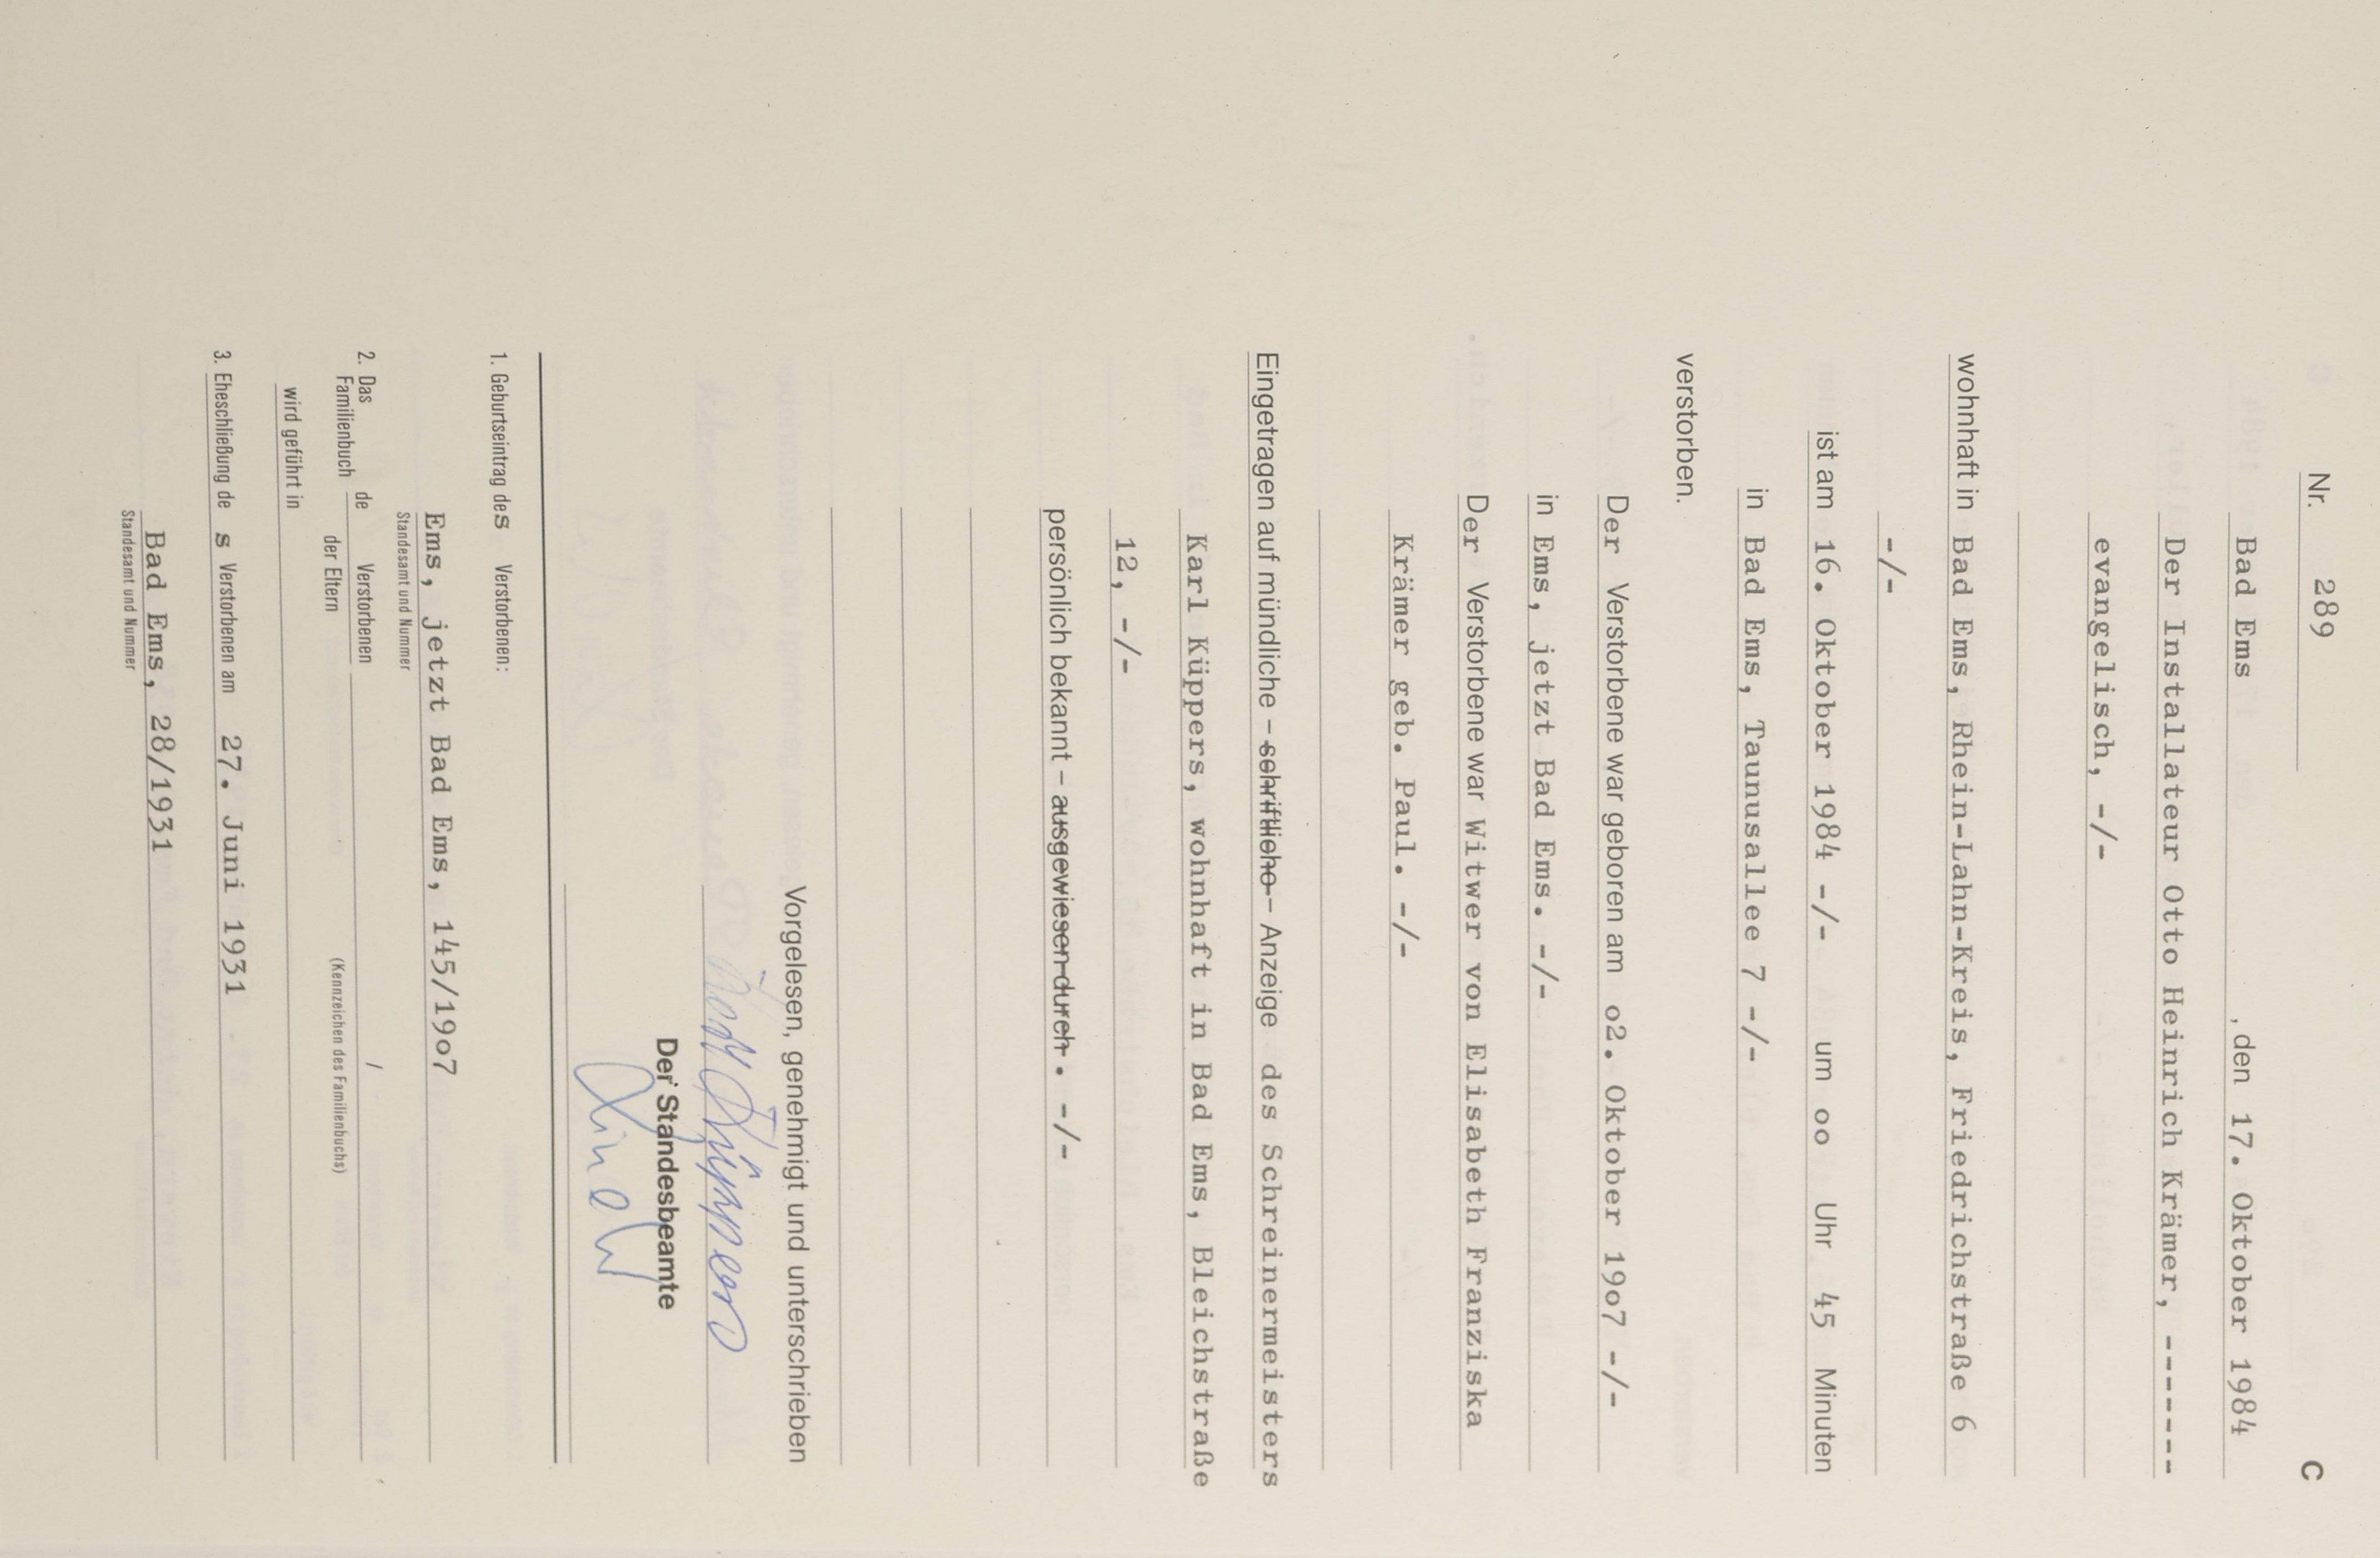 C
Nr. 289
Bad Ems , den 17. Oktober 1984
Der Installateur Otto Heinrich Krämer, -------
evangelisch, -/-
wohnhaft in Bad Ems, Rhein-Lahn-Kreis, Friedrichstraße 6
-/-
ist am 16. Oktober 1984 -/- um oo Uhr 45 Minuten
in Bad Ems, Taunusallee 7 -/-
verstorben.
Der Verstorbene war geboren am o2. Oktober 19o7 -/-
in Ems, jetzt Bad Ems. -/-
Der Verstorbene war Witwer von Elisabeth Franziska
Krämer geb. Paul. -/-
Eingetragen auf mündliche – schriftliche – Anzeige des Schreinermeisters
Karl Küppers, wohnhaft in Bad Ems, Bleichstraße
12, -/-
persönlich bekannt – ausgewiesen durch . -/-
Vorgelesen, genehmigt und unterschrieben
Karl Küppers
Der Standesbeamte
1. Geburtseintrag des Verstorbenen:
Ems, jetzt Bad Ems, 145/19o7
Standesamt und Nummer
2. Das Familienbuch de Verstorbenen /
der Eltern (Kennzeichen des Familienbuchs)
wird geführt in
3. Eheschließung de s Verstorbenen am 27. Juni 1931
Bad Ems, 28/1931
Standesamt und Nummer